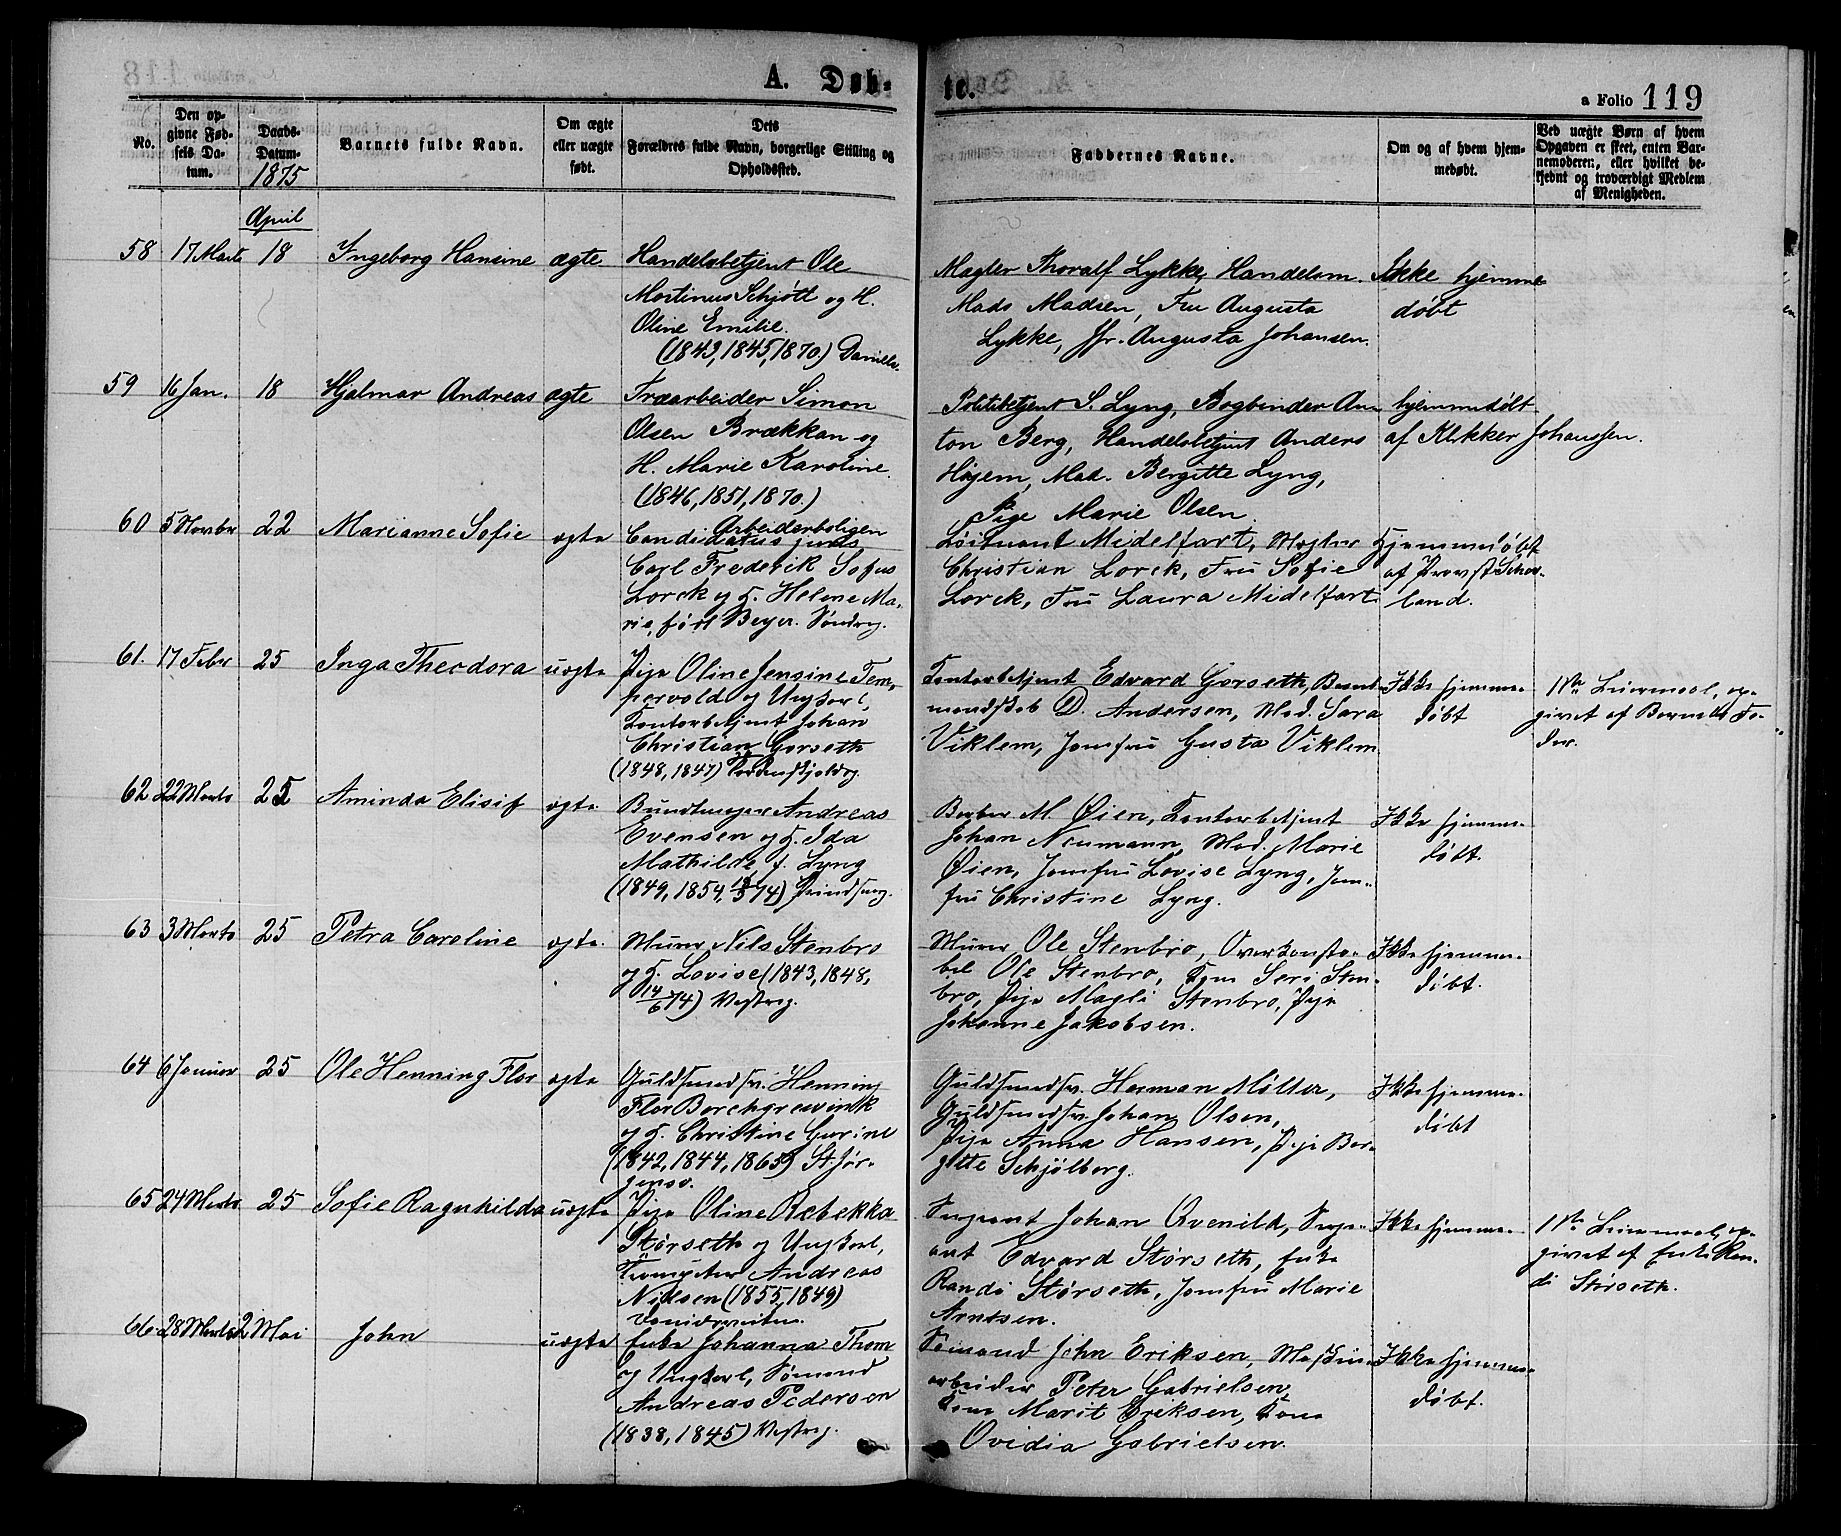 A. Døb-
te.
a Folio 119
No.
Den op-
givne Fød-
sels Da-
tum.
Daabs-
Datum.
1875
Barnets fulde Navn.
Om ægte
eller uægte
født.
Dets
Forældres fulde Navn, borgerlige Stilling og
Opholdssted.
Faddernes Navne.
Om og af hvem hjem-
medøbt.
Ved uægte Børn af hvem
Opgaven er skeet, enten Bar-
nemoderen, eller hvilket be-
kjendt og troværdigt Medlem
af Menigheden.
April
58 17 Marts 18 Ingeborg Hansine ægte
Handelsbetjent Ole
Martinus Schjött og H.
Oline Emilie.
(1843, 1845, 1870.) Daniels.
Mægler Thoralf Lykke, Handelsm.
Mads Madsen, Fru Augusta
Lykke, Jfr. Augusta Johansen.
Ikke hjemme-
døbt
59 16 Jan. 18 Hjalmar Andreas ægte
Træarbeider Simon
Olsen Brækkan og
H. Marie Karoline.
(1846, 1851, 1870.)
Arbeiderboligen
Politibetjent S. Lyng, Bogbinder An-
ton Berg, Handelsbetjent Anders
Høgem, Mad. Bergitte Lyng,
Pige Marie Olsen.
hjemmedøbt
af Klokker Johanssen.
60 5 Novbr 22 Marianne Sofie ægte
Candidatus juris
Carl Frederik Sofus
Lorck og H. Helene Ma-
rie, født Beyer. Søndreg.
Løitnant Midelfart, Mægler
Christian Lorck, Fru Sofie
Lorck, Fru Laura Midelfart
Hjemmedøbt
af Provst
land.
61. 17 Febr 25 Inga Theodora uægte
Pige Oline Jensine Tem-
pervold og Ungkarl,
Kontorbetjent Johan
Christian Gorseth
(1848, 1847)
Kontorbetjent Edvard Gorseth, Brand-
mandskab D. Andersen, Mad. Sara
Viklem, Jomfru Gusta Viklem
Ikke hjemme-
døbt
1ste Leiermaal, op-
givet af Barnets Fa-
der.
62 22 Marts 25 Aminda Elisif ægte
Bundtmager Andreas
Evensen og H. Ida
Mathilde f. Lyng
(1849, 1854, 74) Prindsensg.
Barber M. Øien, Kontorbetjent
Johan Neumann, Mad. Marie
Øien, Jomfru Lovise Lyng, Jom-
fru Christine Lyng.
Ikke hjemme-
døbt.
63 3 Marts 25 Petra Caroline ægte.
Murer Nils Stenbro
og H. Lovise (1843, 1848,
14/6 74) Vestreg.
Murer Ole Stenbro, Overkonsta-
bel Ole Stenbro, Kone Seri Sten-
bro, Pige Magli Stenbro, Pige
Johanne Jakobsen.
Ikke hjemme-
døbt.
64 6 Januar 25 Ole Henning Flor ægte
Guldsmedsv. Henning
Flor Borchgrevink
og H. Christine Gurine
(1842, 1844, 1865) St Jør-
gensv.
Guldsmedsv. Herman Møller,
Guldsmedsv. Johan Olsen,
Pige Anna Hansen, Pige Ber-
gitte Schjølberg.
Ikke hjemme-
døbt
65 24 Marts 25 Sofie Ragnhilda uægte
Pige Oline Rebekka
Størseth og Ungkarl,
Trompeter Andreas
Nilsen (1855, 1849)
Danielsveiten.
Sergeant Johan Qvenild, Serge-
ant Edvard Størseth, Enke
Randi Størseth, Jomfru Marie
Arntsen.
Ikke hjemme-
1ste Leiermaal, op-
givet af Enke Ran-
di Størseth.
66. 28 Marts 2 Mai John uægte
Enke Johanna Thom
og Ungkarl, Sømand
Andreas Pedersen
(1838, 1845) Vestreg.
Sømand John Eriksen, Maskin-
arbeider Peter Gabrielsen,
Kone Marit Eriksen, Kone
Ovidia Gabrielsen.
Ikke hjemme-
døbt.